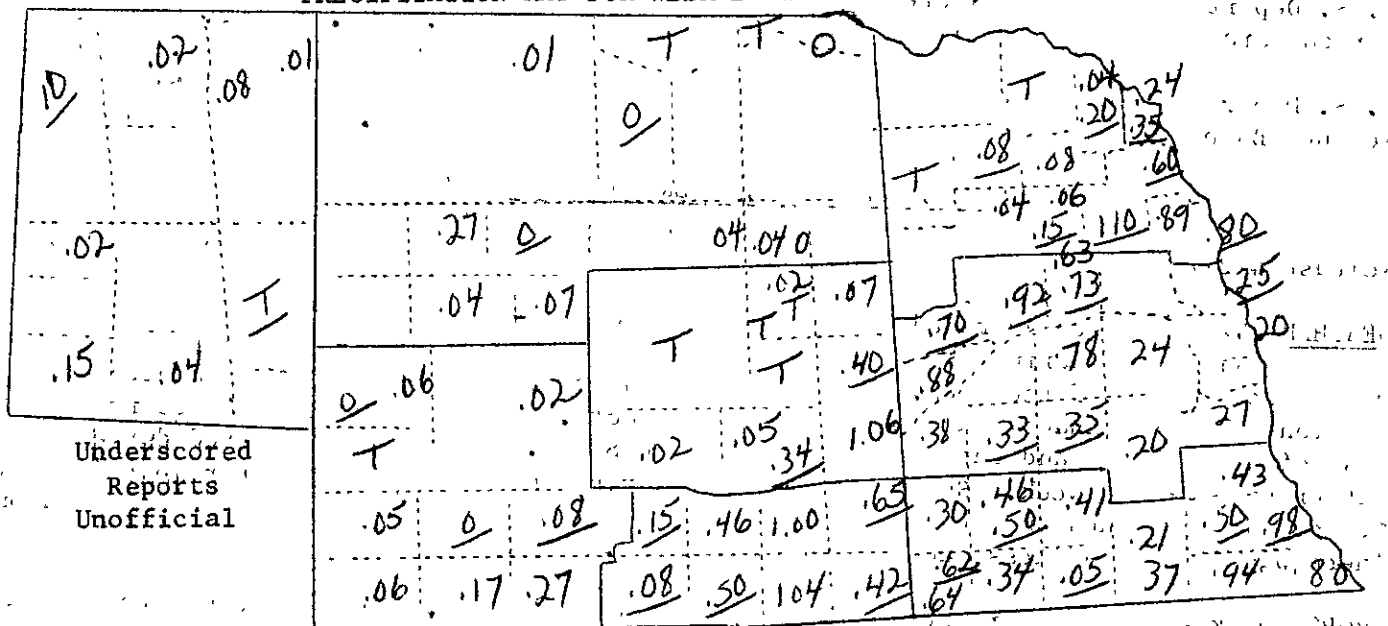 .02 .01 .01 T T O
10 .08 0 T .04 .24
.20 .35
T .08 .08 .60
.04 .06
.27 0 04 .04 0 .15 110 .89 80
.02 .63
.04 .07 .02 .07 .92 .73 .25
T T T T .70 20
.15 .04 T .40 .88 .78 24
0 .06 .02
T .02 .05 .34 1.06 .38 .33 .35 .20 27
Underscored
Reports
Unofficial
.05 0 .08 .15 .46 1.00 .65 .30 .46 .50 .41 .21 .43 .50 .98
.06 .17 .27 .08 .50 104 .42 .62 .64 .34 .05 37 .94 80